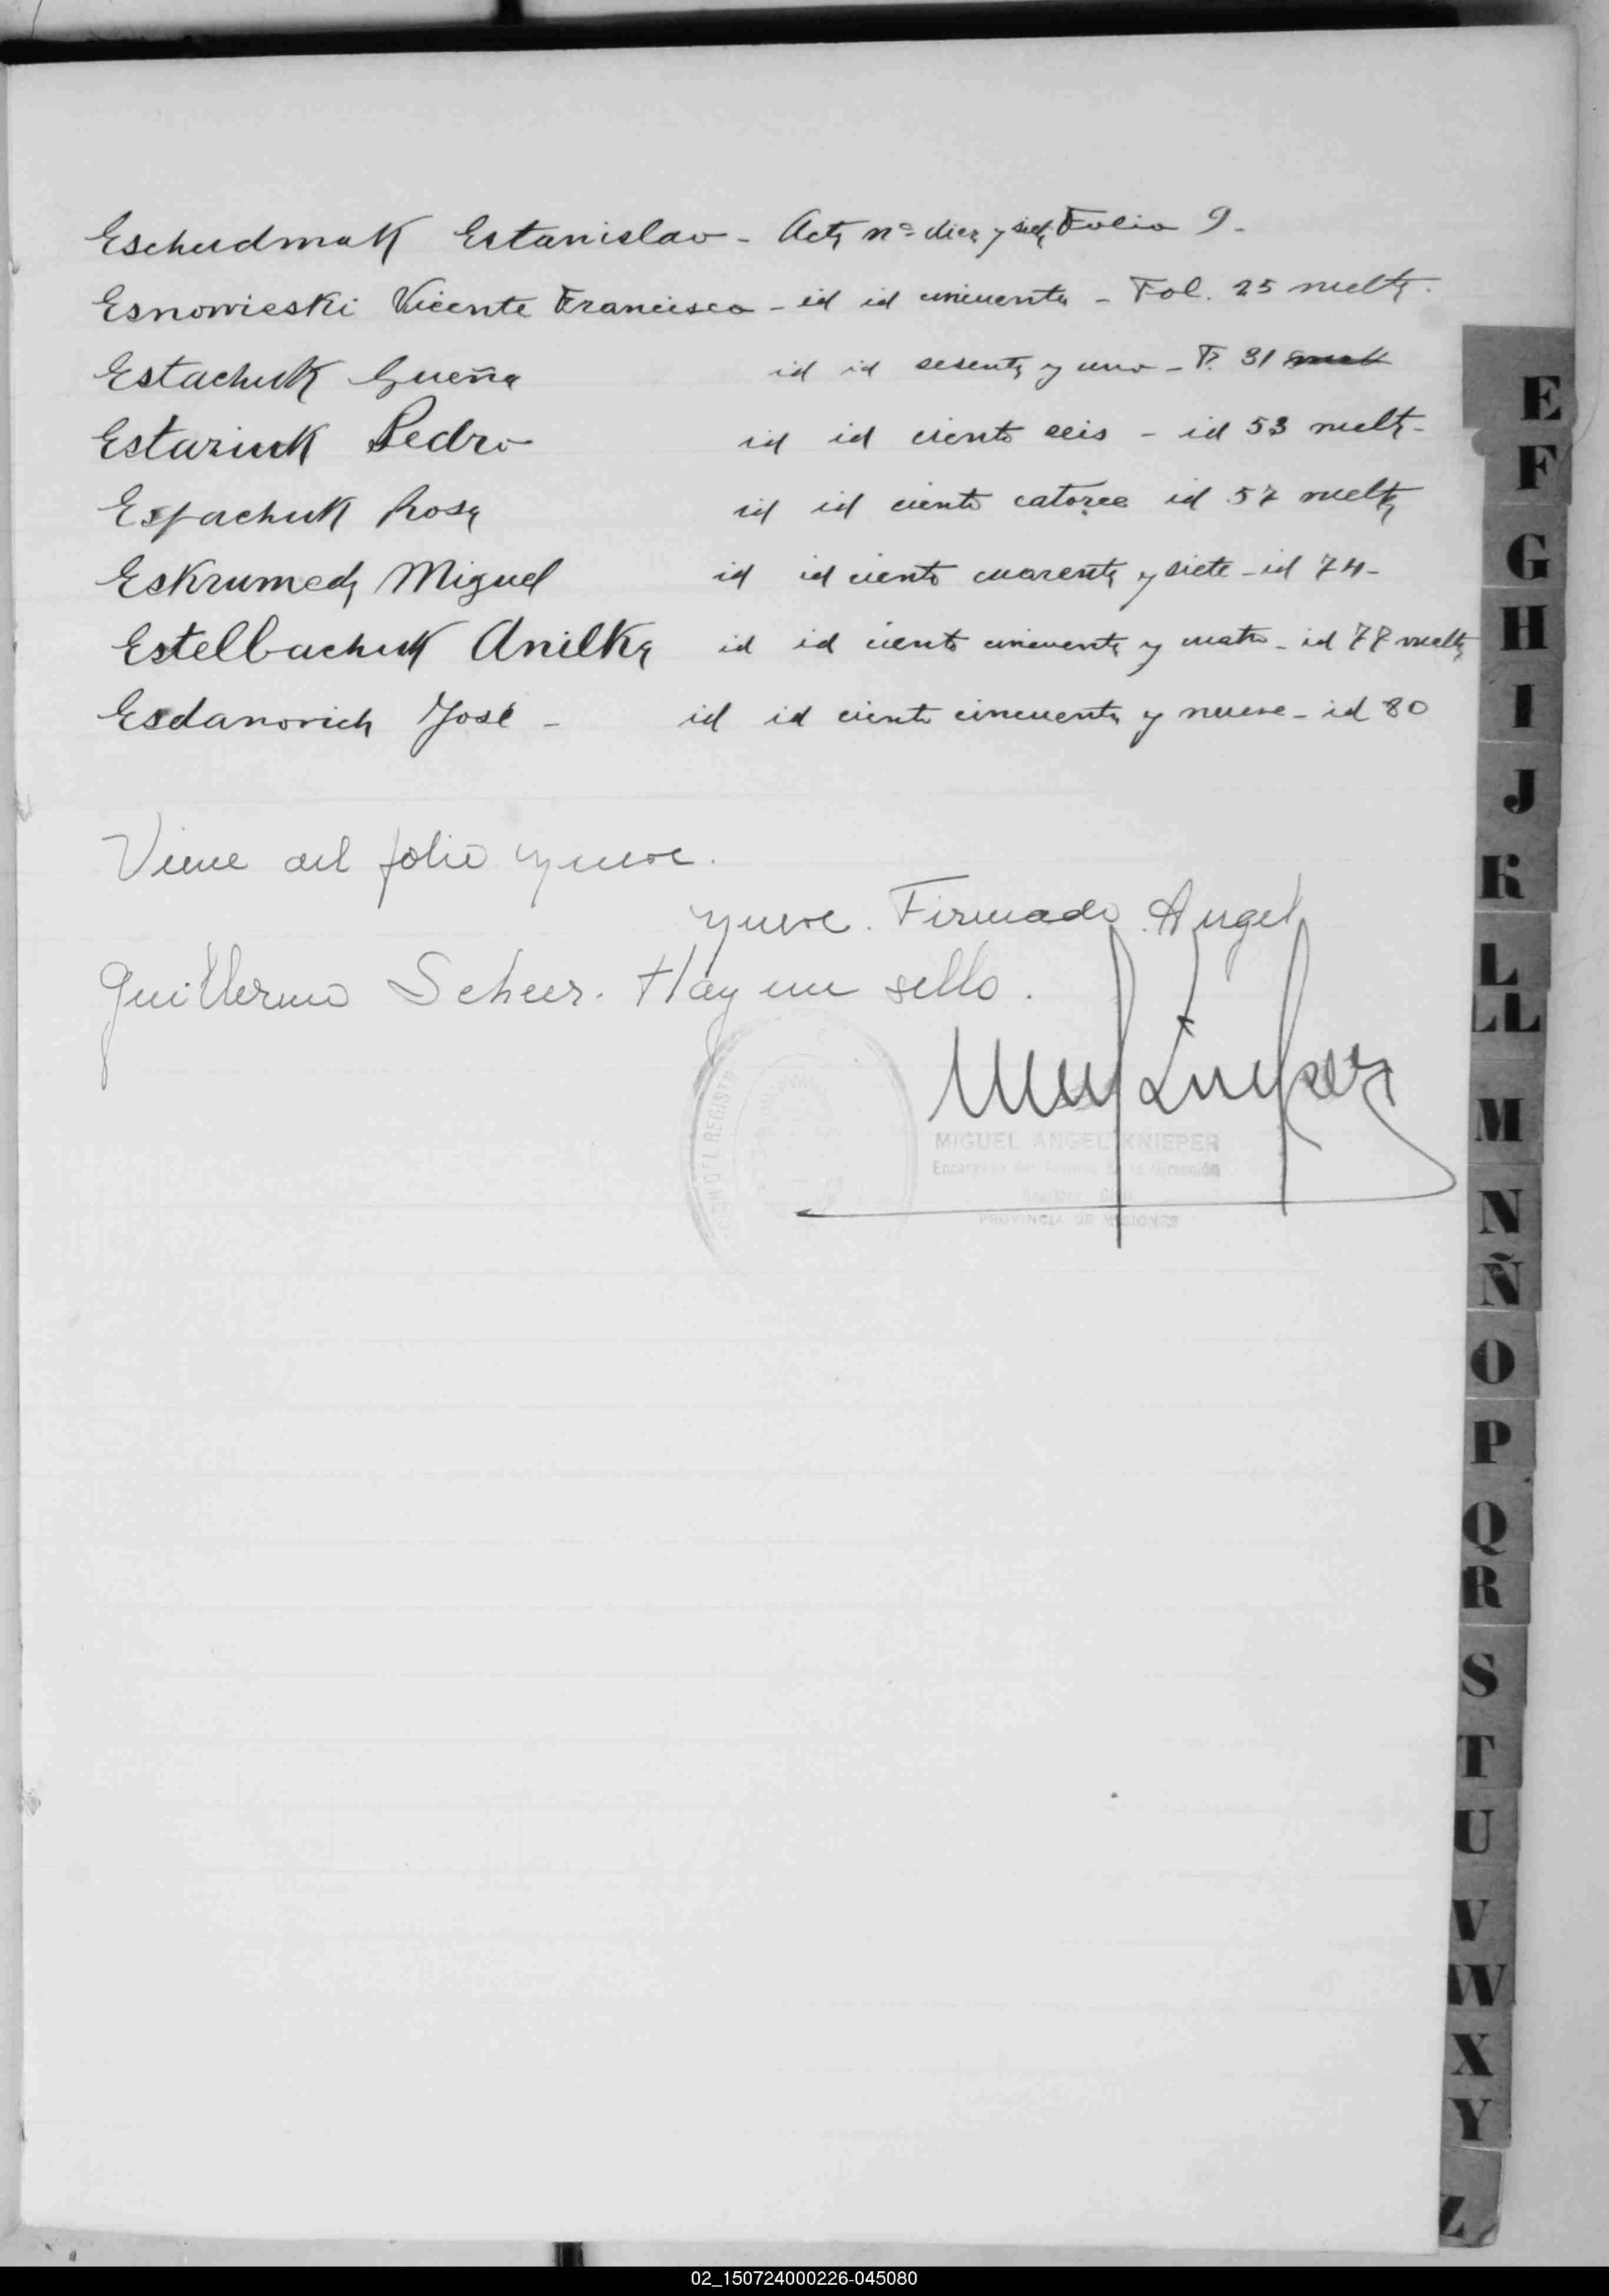 Eschudmak Estanislao - Acta nº diez y siete Folio 9.
Esnowieski Vicente Francisco - id id cincuenta - Fol. 25 vuelta.
Estachuk Gueña id id sesenta y uno - F. 31
Estariuk Pedro id id ciento seis - id 53 vuelta -
Espachuk Rosa id id ciento catorce id 57 vuelta
Eskrumeda Miguel id id ciento cuarenta y siete - id 74 -
Estelbachuk Anilka id id ciento cincuenta y cuatro - id 77 vuelta
Esdanovich José - id id ciento cincuenta y nueve - id 80
Viene del folio nueve.
nueve. Firmado. Angel
Guillermo Scheer. Hay un sello.
MIGUEL ANGEL KNIEPER
Encargado del Archivo de la Dirección
Registro Civil
PROVINCIA DE MISIONES
E
F
G
H
I
J
K
L
LL
M
N
Ñ
O
P
Q
R
S
T
U
V
W
X
Y
Z
02_150724000226-045080